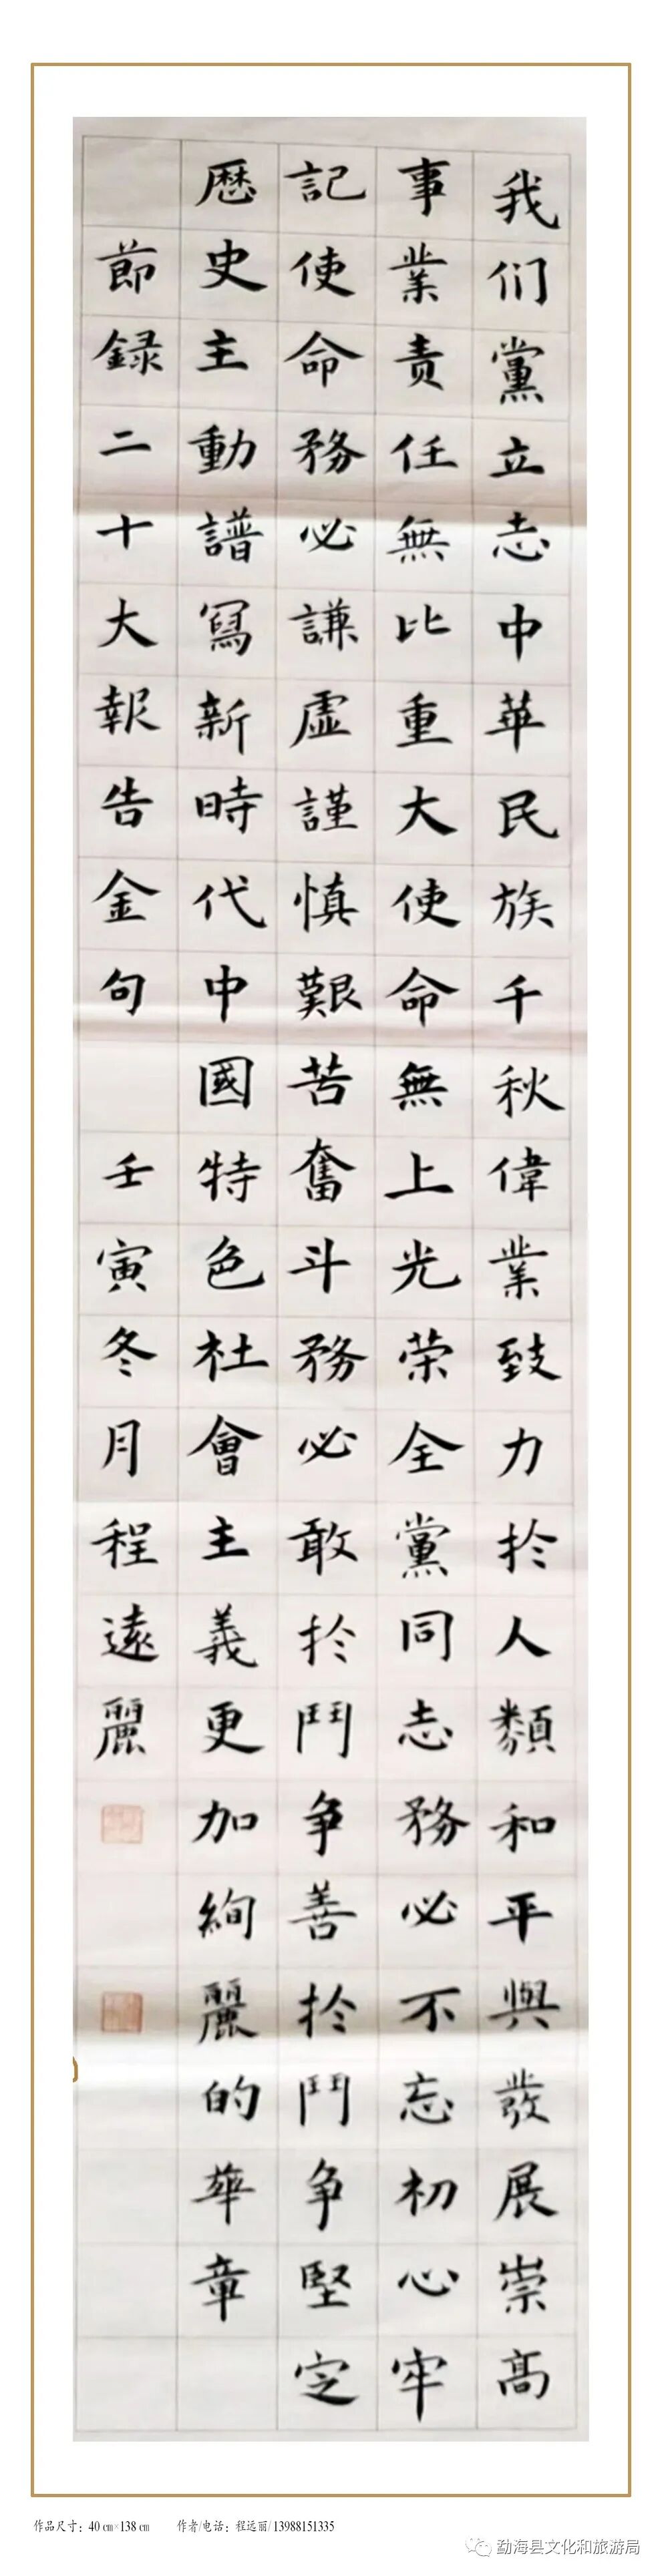 我们黨立志中華民族千秋偉業致力扵人類和平與發展崇高
事業责任無比重大使命無上光荣全黨同志務必不忘初心牢
記使命務必謙虚謹慎艱苦奮斗務必敢扵鬥争善扵鬥争堅定
歷史主動譜寫新時代中國特色社會主義更加絢麗的華章
節録二十大報告金句 壬寅冬月程遠麗
作品尺寸：40 cm×138 cm 作者/电话：程远丽/13988151335
勐海县文化和旅游局